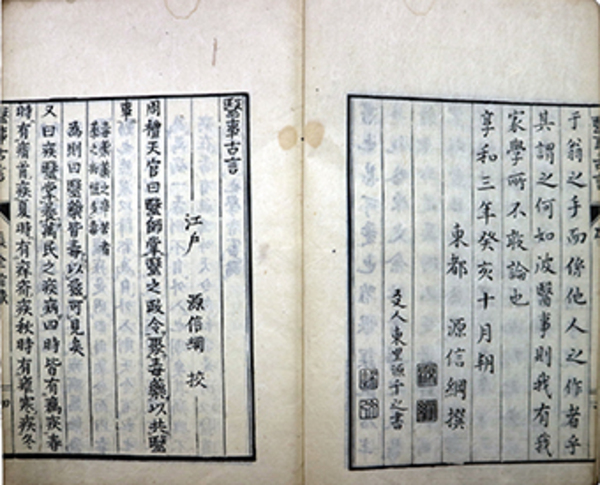 于翁之手而係他人之作者乎
其謂之何如波醫事則我有我
家學所不敢論也
享和三年癸亥十月朔
東都 源信綱撰
友人東里源千之書
醫事古言
江戶 源信綱 校
周禮天官曰醫師掌醫之政令聚毒藥以共醫
事
毒藥藥之辛苦者
藥之物恒多毒
為則曰醫藥皆毒以可見矣
又曰疾醫掌養萬民之疾病四時皆有癘疾春
時有痟首疾夏時有痒疥疾秋時有瘧寒疾冬
醫事古言